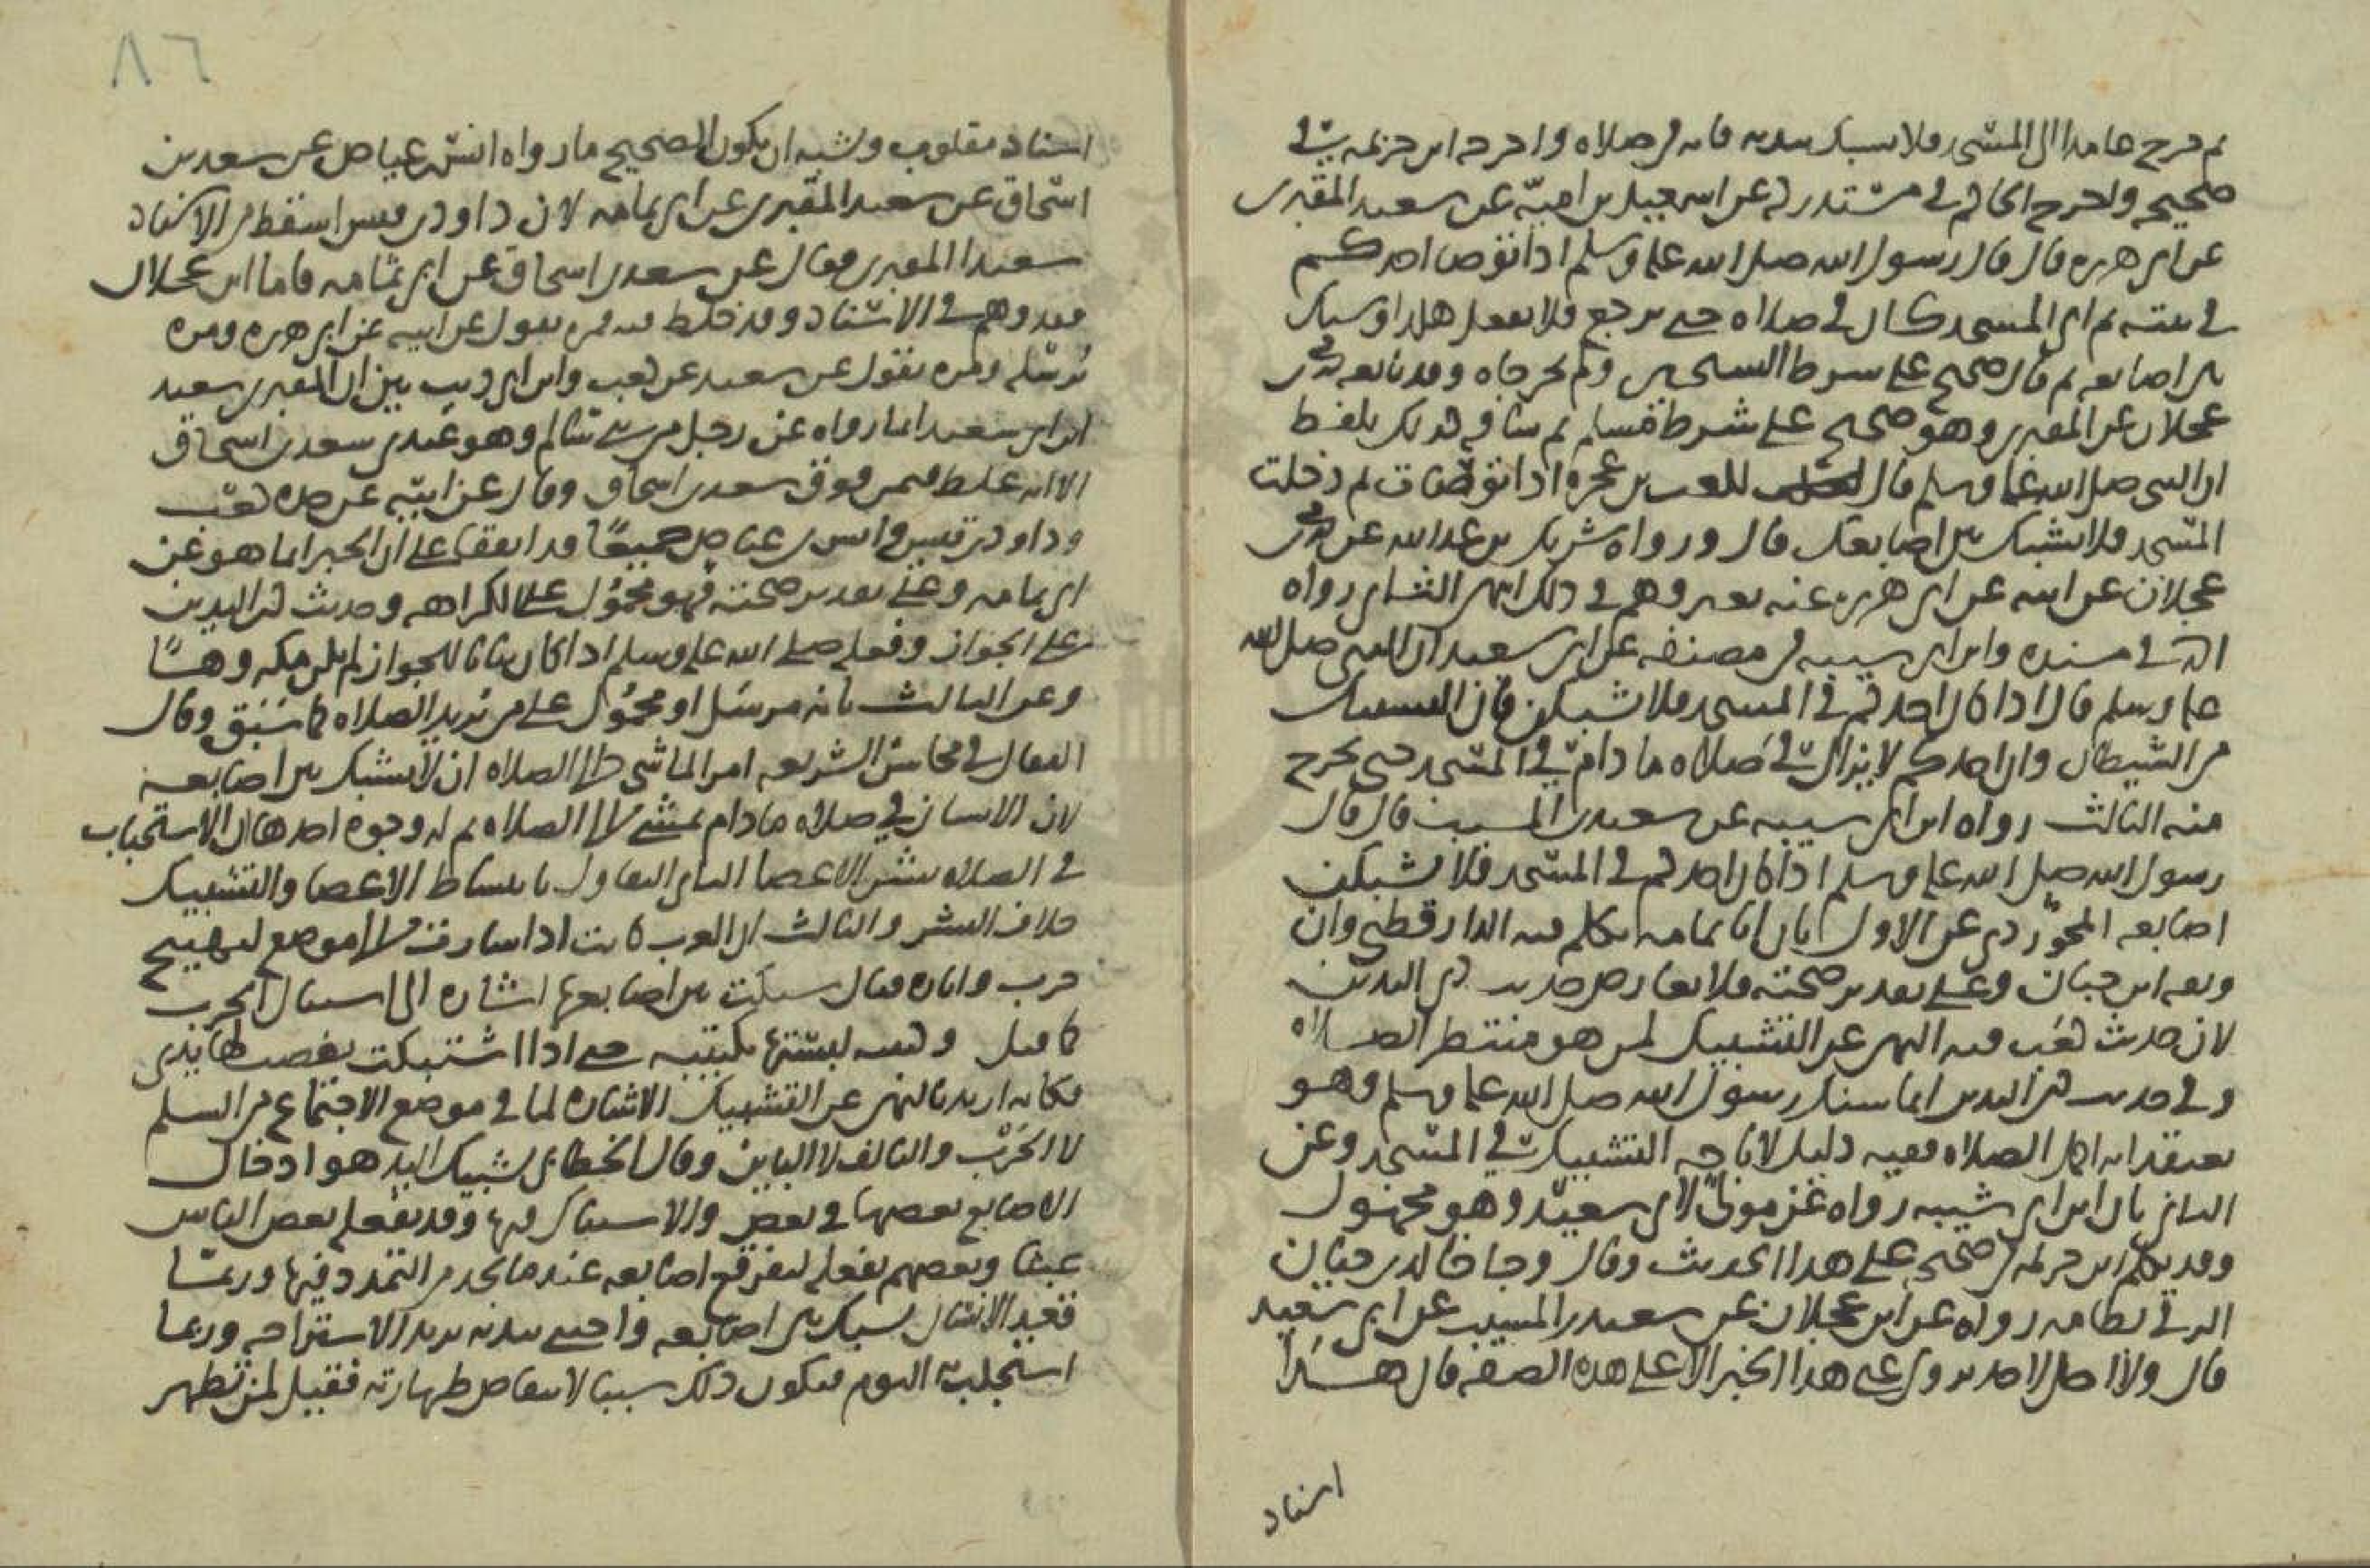 ثم خرج عامدا الى المسجد فلا يشبك بيديه فانه في صلاه واخرجه ابن خزيمه في
صحيحه واخرج الحاكم في مستدركه عن اسمعيل بن اميه عن سعيد المقبري
عن ابي هريره قال قال رسول الله صلى الله عليه وسلم اذا توضا احدكم
في بيته ثم اتى المسجد كان في صلاه حتى يرجع فلا يفعل هكذا وشبك
بين اصابعه ثم قال صحيح على شرط الشيخين ولم يخرجاه وقد تابعه محمد بن
عجلان عن المقبري وهو صحيح على شرط مسلم ثم ساقه كذلك بلفظ
ان النبي صلى الله عليه وسلم قال لكعب بن عجره اذا توضات ثم دخلت
المسجد فلا تشبك بين اصابعك قال ورواه شريك بن عبد الله عن محمد بن
عجلان عن ابيه عن ابي هريره عنه بعد وهم في ذلك انتهى الثاني رواه
احمد في مسنده وابن ابي شيبه في مصنفه عن ابي سعيد ان النبي صلى الله
عليه وسلم قال اذا كان احدكم في المسجد فلا يشبكن فان التشبيك
من الشيطان وان احدكم لا يزال في صلاه ما دام في المسجد حتى يخرج
منه الثالث رواه ابن ابي شيبه عن سعيد بن المسيب قال قال
رسول الله صلى الله عليه وسلم اذا كان احدكم في المسجد فلا يشبكن
اصابعه المجوزون عن الاول بان ابا ثمامه تكلم فيه الدارقطني وان
وثقه ابن حبان وعلى تقدير صحته فلا يعارض حديث ذي اليدين
لان حديث كعب فيه النهي عن التشبيك لمن هو منتظر الصلاه
وفي حديث ذي اليدين انما شبك رسول الله صلى الله عليه وسلم وهو
يعتقد انه اكمل الصلاه ففيه دليل لاباحه التشبيك في المسجد وعن
الثاني بان ابن ابي شيبه رواه عن مولى لابي سعيد وهو مجهول
وقد تكلم ابن خزيمه في صحيحه على هذا الحديث وقال وجا خالد بن حيان
الرقي بطامه رواه عن ابن عجلان عن سعيد بن المسيب عن ابي سعيد
قال ولا احل لاحد يروي عني هذا الخبر الا على هذه الصفه قال هذا
اسناد
٨٦
اسناد مقلوب ويشبه ان يكون الصحيح ما رواه انس بن عياض عن سعد بن
اسحاق عن سعيد المقبري عن ابي ثمامه لان داود بن قيس اسقط من الاسناد
سعيدا المقبري فقال عن سعد بن اسحاق عن ابي ثمامه فاما ابن عجلان
فقد وهم في الاسناد وقد خلط فيه فمره يقول عن ابيه عن ابي هريره ومره
يرسله ومره يقول عن سعيد عن كعب وابن ابي ذيب بين ان المقبري سعيد
ابن ابي سعيد انما رواه عن رجل من بني سالم وهو عندي سعد بن اسحاق
الا انه غلط فيمن فوق سعد بن اسحاق وقال عن ابيه عن جده كعب
وداود بن قيس وانس بن عياض جميعا قد اتفقا على ان الخبر انما هو عن
ابي ثمامه وعلى تقدير صحته فهو محمول على الكراهه وحديث ذي اليدين
على الجواز وفعله صلى الله عليه وسلم اذا كان بيانا للجواز لم يكن مكروها
وعن الثالث بانه مرسل او محمول على من يريد الصلاه كما سبق وقال
القفال في محاسن الشريعه امر الماشي الى الصلاه ان لا يشبك بين اصابعه
لان الانسان في صلاه ما دام يمشي الى الصلاه ثم له وجوه احدها ان الاستحباب
في الصلاه نشر الاعضا الثاني التفاول بانبساط الاعضا والتشبيك
خلاف النشر والثالث ان العرب كانت اذا اشارت الى موضع لتهييج
حرب واثاره قتال شبكت بين اصابعها اشاره الى اشتباك الحرب
كما قيل وكتيبه لبستها بكتيبه حتى اذا اشتبكت نفضت لها يدي
فكانه اريد بالنهي عن التشبيك الاشاره لما في موضع الاجتماع من السلم
لا الحرب والتالف لا التباين وقال الخطابي تشبيك اليد هو ادخال
الاصابع بعضها في بعض والاشتباك فيها وقد يفعله بعض الناس
عبثا وبعضهم يفعله ليفرقع اصابعه عندما يجد من التمدد فيها وربما
قعد الانسان يشبك بين اصابعه واحتبى بيديه يريد الاستراحه وربما
استجلبت النوم فيكون ذلك سببا لانتقاض طهارته فقيل لمن تطهر